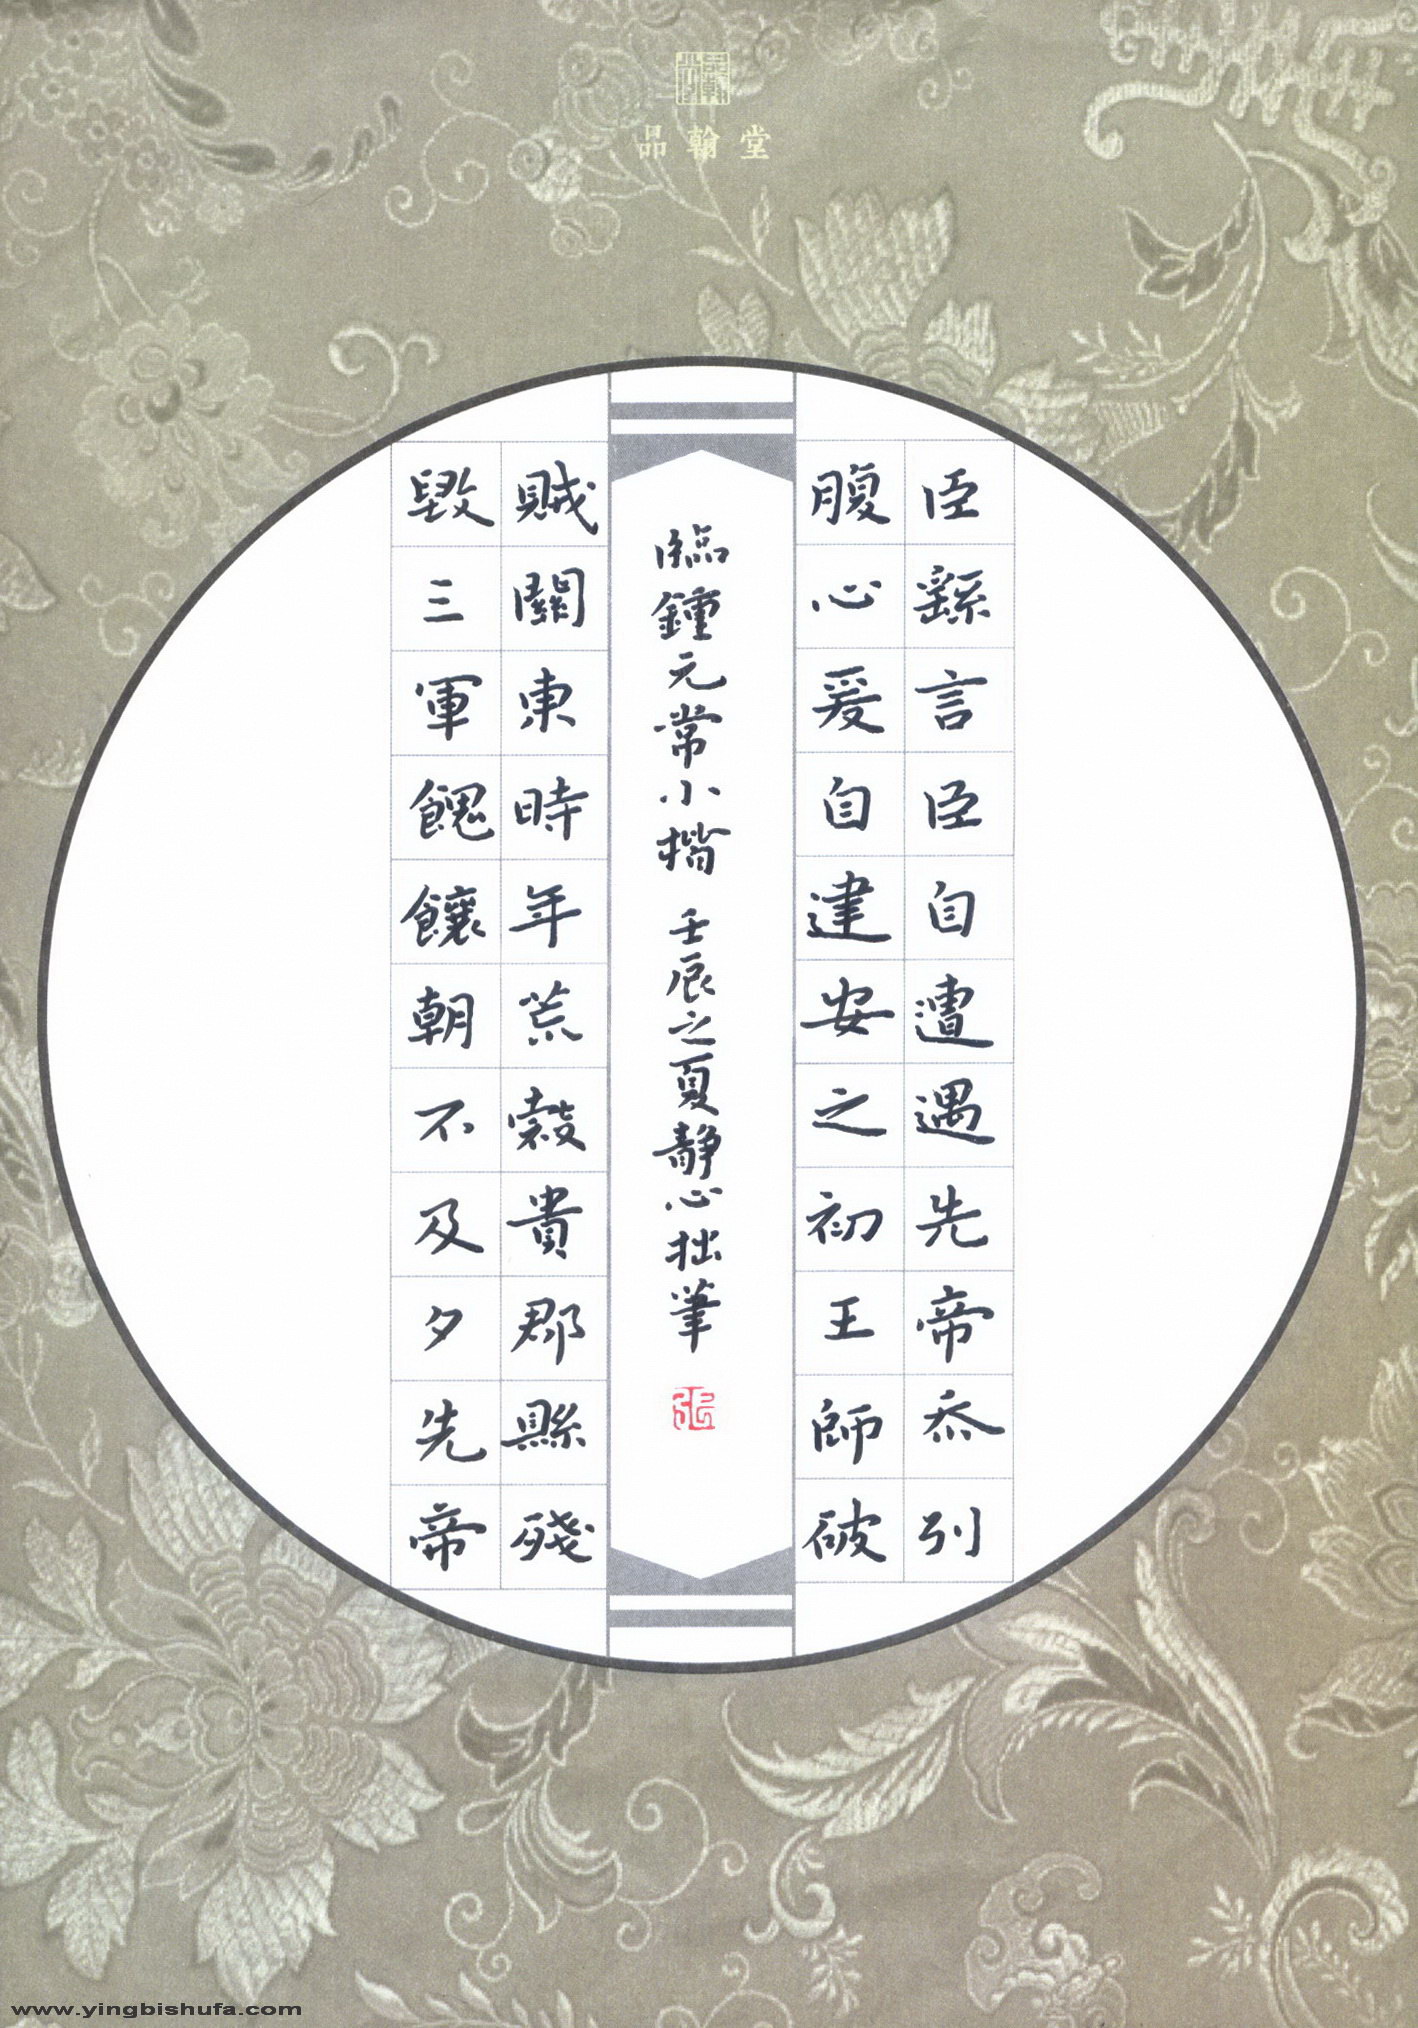 品翰堂
臣繇言臣自遭遇先帝忝列
腹心爰自建安之初王師破
臨鍾元常小楷 壬辰之夏靜心拙筆
賊關東時年荒穀貴郡縣殘
毀三軍餽饟朝不及夕先帝
www.yingbishufa.com